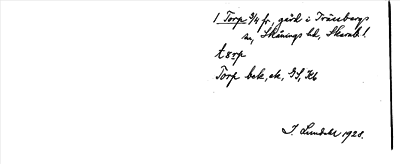 1 Torp 3/4 fr, gård i Trässbergs
sn, Skånings hd, Skarab. l.
tɔrp
Torp bek, ek, GS, Kb
I. Lundahl 1928.